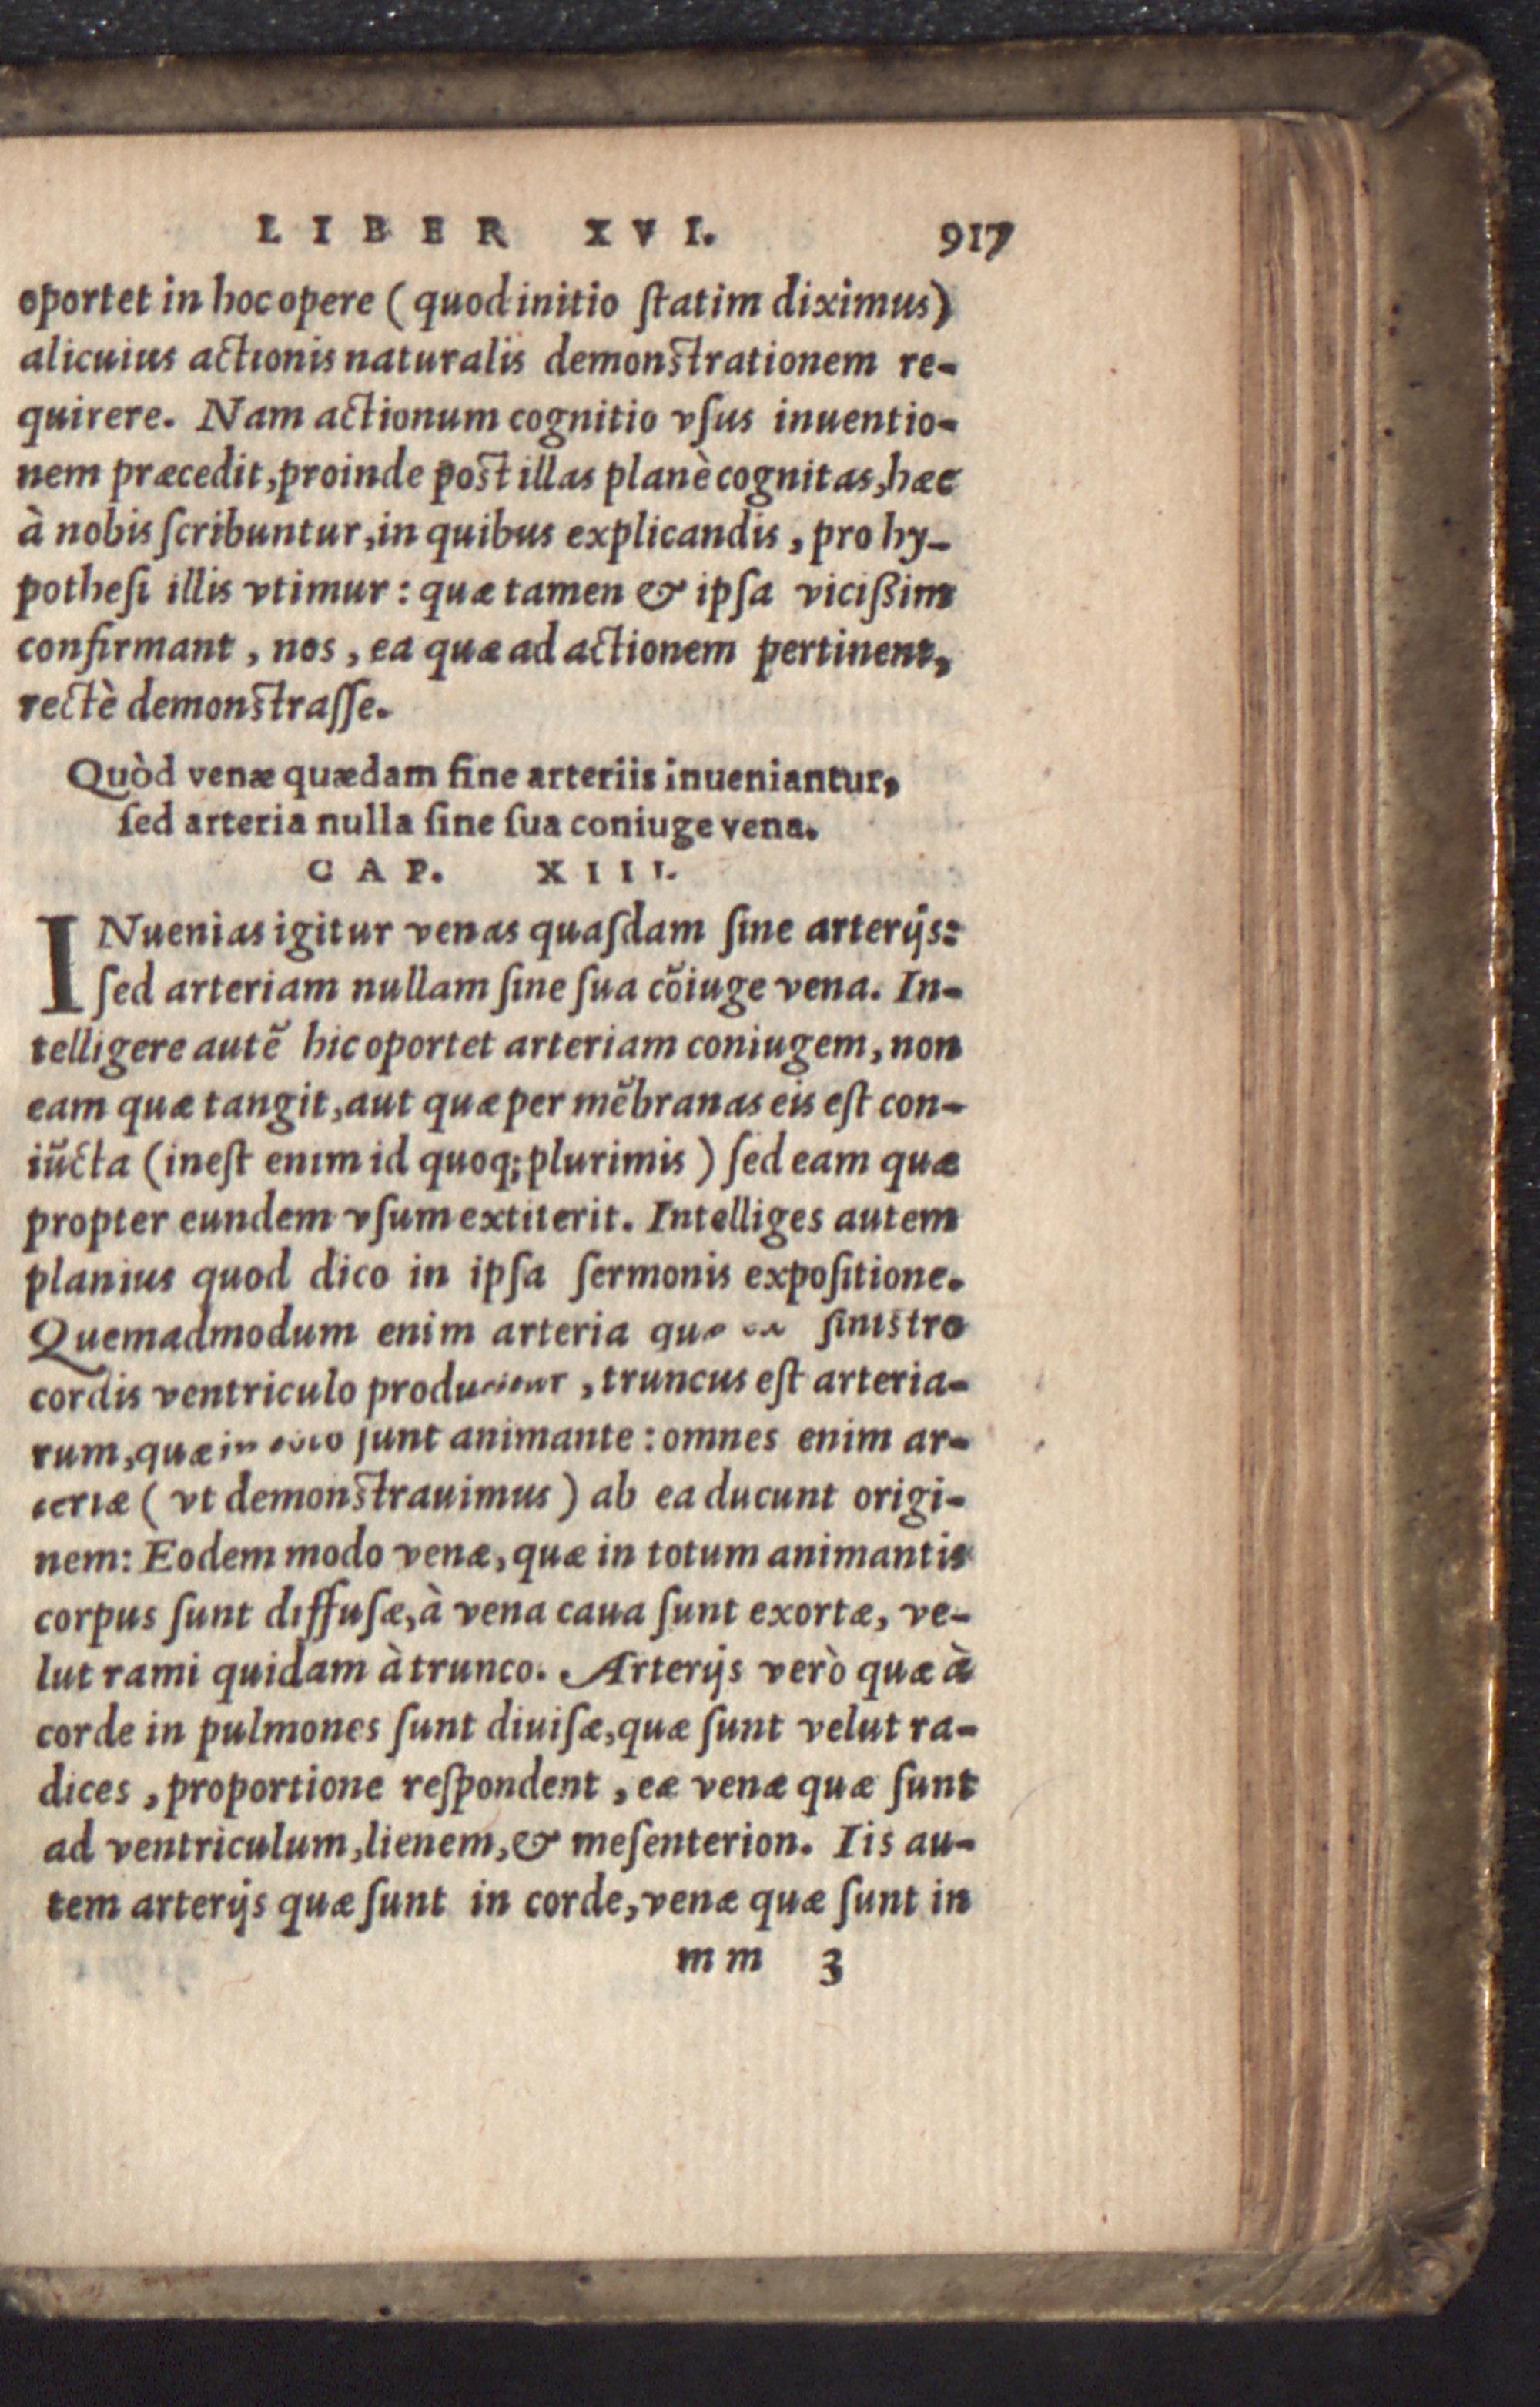 LIBER XVI. 917
oportet in hoc opere (quod initio ſtatim diximus)
alicuius actionis naturalis demonſtrationem re-
quirere. Nam actionum cognitio vſus inuentio-
nem præcedit, proinde poſt illas planè cognitas, hæc
à nobis ſcribuntur, in quibus explicandis, pro hy-
potheſi illis vtimur: quæ tamen & ipſa viciſsim
confirmant, nos, ea quæ ad actionem pertinent,
rectè demonſtraſſe.
Quòd venæ quædam ſine arteriis inueniantur,
ſed arteria nulla ſine ſua coniuge vena.
CAP. XIII.
INuenias igitur venas quaſdam ſine arterijs:
ſed arteriam nullam ſine ſua cõiuge vena. In-
telligere autẽ hic oportet arteriam coniugem, non
eam quæ tangit, aut quæ per mẽbranas eis eſt con-
iũcta (ineſt enim id quoq; plurimis) ſed eam quæ
propter eundem vſum extiterit. Intelliges autem
planius quod dico in ipſa ſermonis expoſitione.
Quemadmodum enim arteria ſiniſtro
cordis ventriculo , truncus eſt arteria-
rum, quæ ſunt animante: omnes enim ar-
teriæ (vt demonſtrauimus) ab ea ducunt origi-
nem: Eodem modo venæ, quæ in totum animantis
corpus ſunt diffuſæ, à vena caua ſunt exortæ, ve-
lut rami quidam à trunco. Arterijs verò quæ à
corde in pulmones ſunt diuiſæ, quæ ſunt velut ra-
dices, proportione reſpondent, eæ venæ quæ ſunt
ad ventriculum, lienem, & meſenterion. Iis au-
tem arterijs quæ ſunt in corde, venæ quæ ſunt in
mm 3